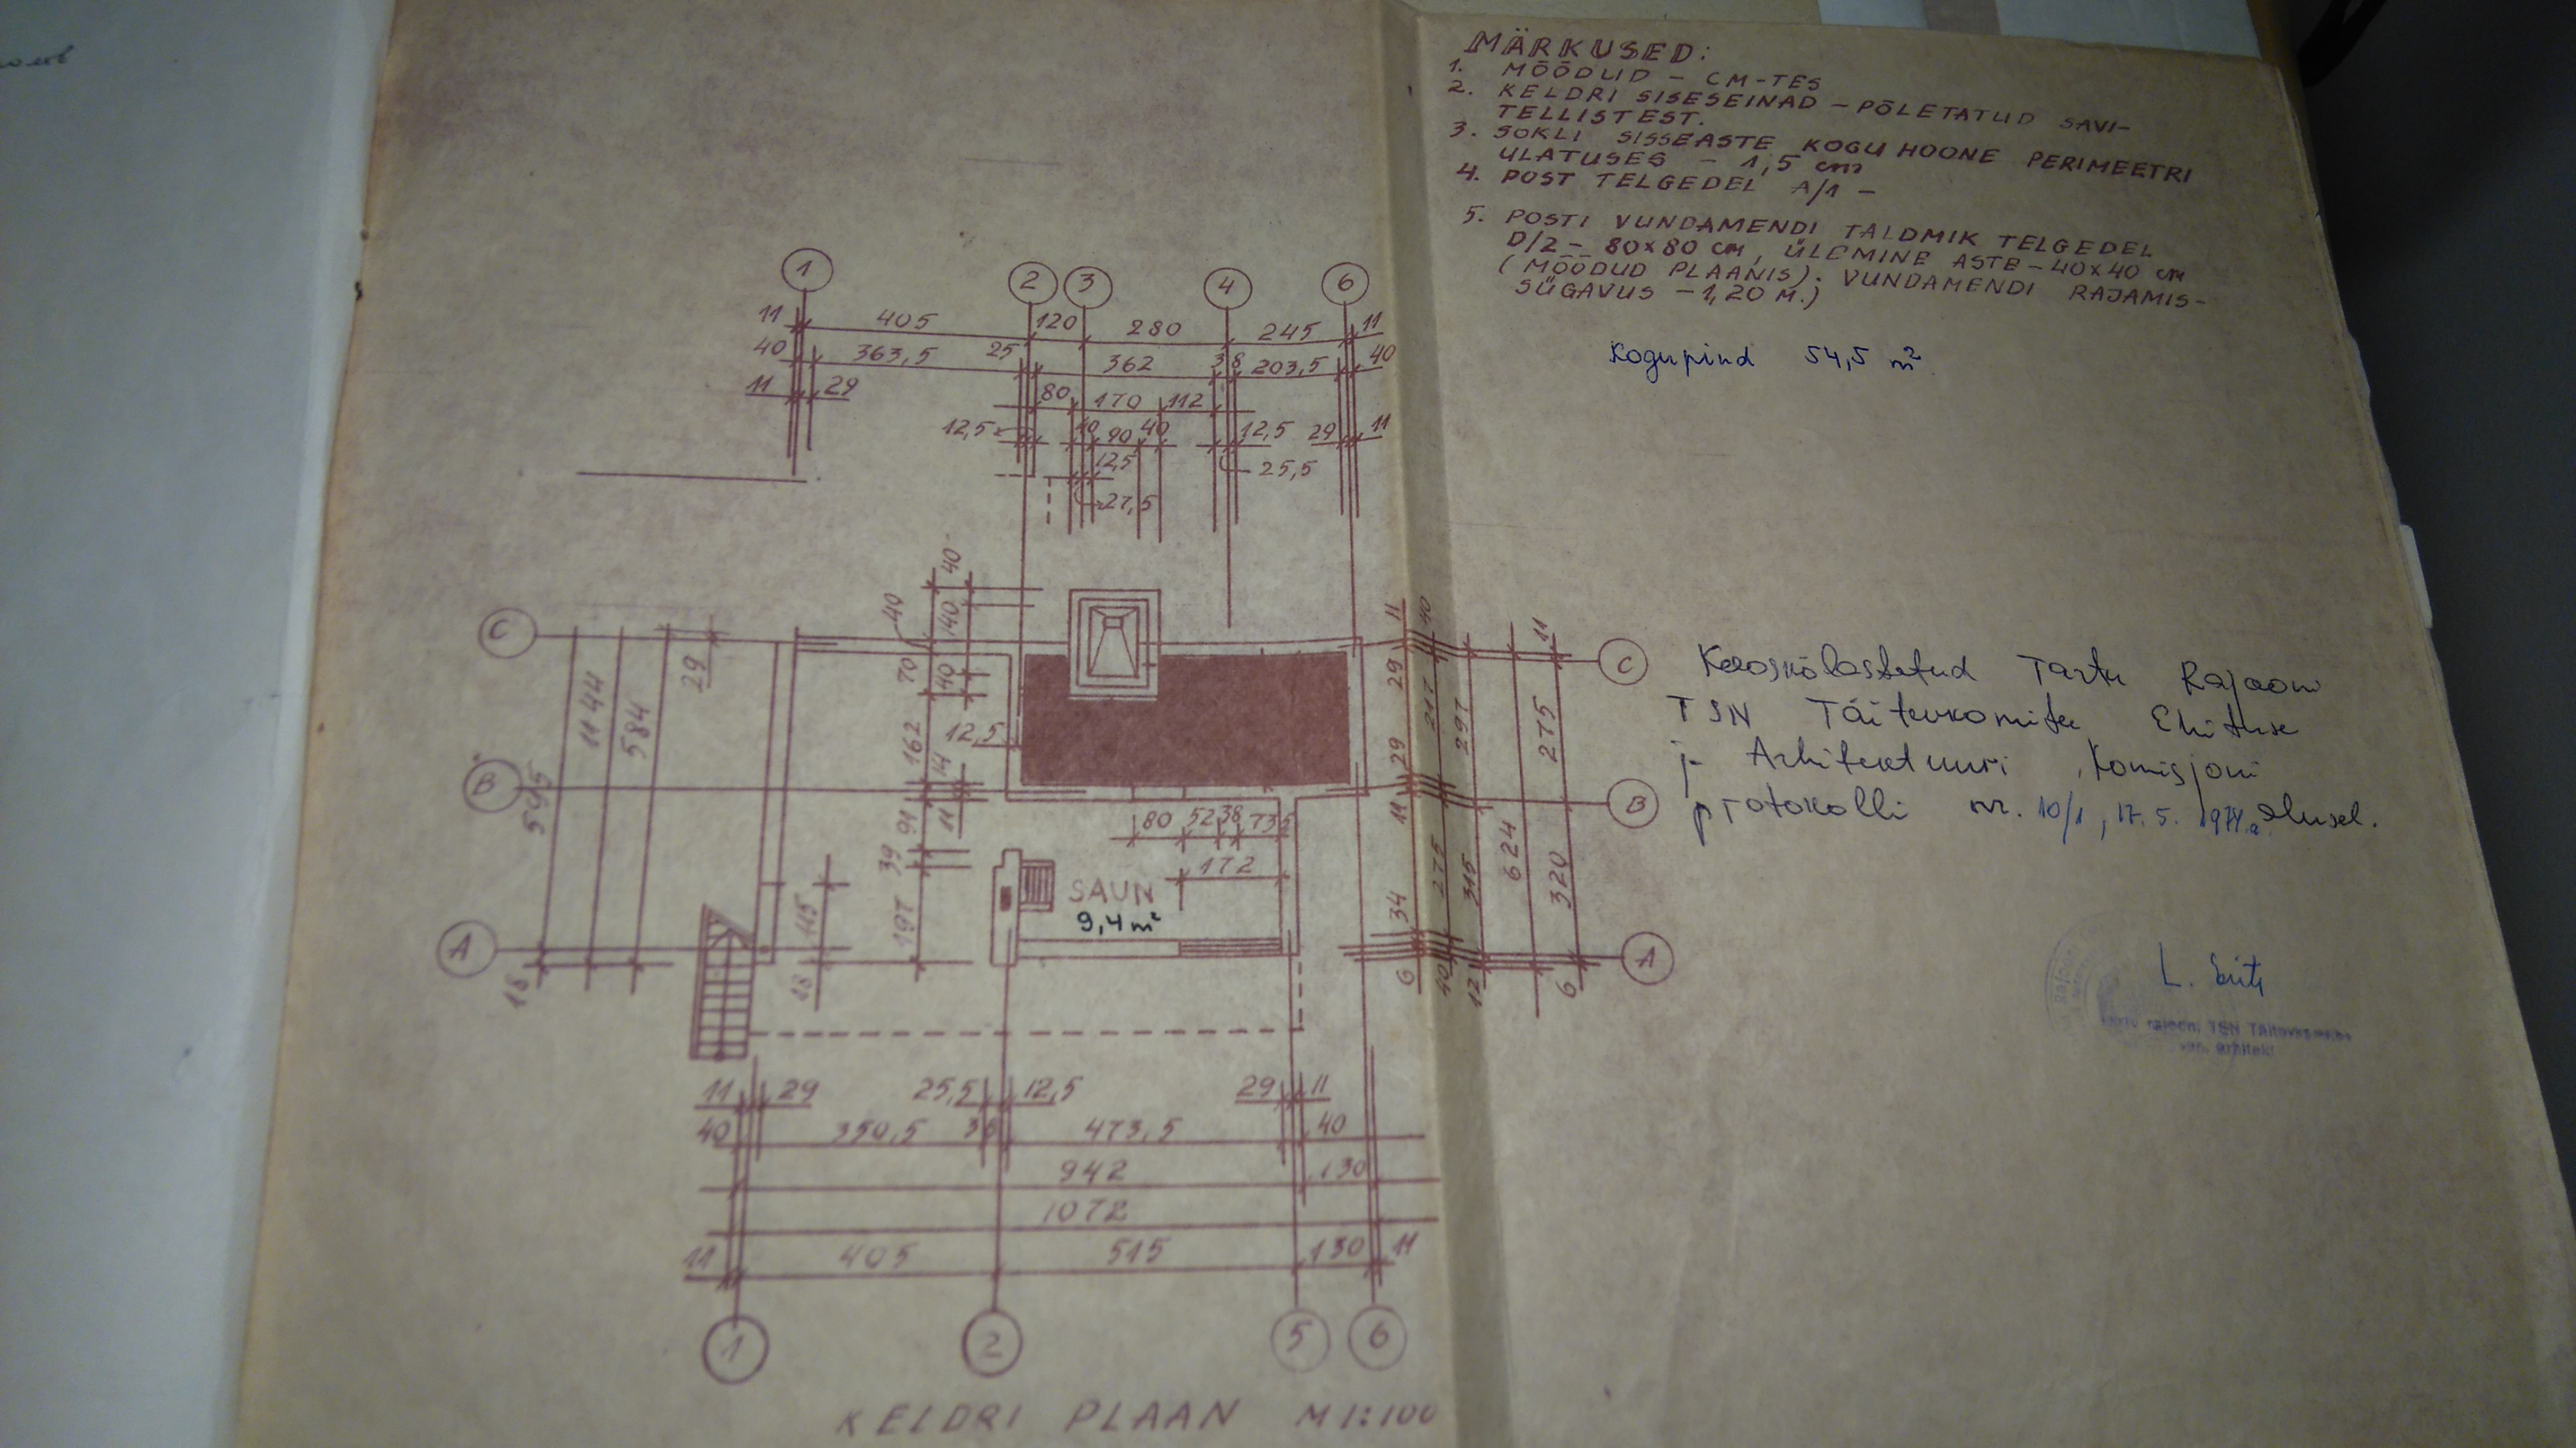 MÄRKUSED:
1. MÕÕDUD - CM-TES
2. KELDRI SISESEINAD - PÕLETATUD SAVI-
TELLISTEST.
3. SOKLI SISSEASTE KOGU HOONE PERIMEETRI
ULATUSES - 1,5 cm
4. POST TELGEDEL A/1 -
5. POSTI VUNDAMENDI TALDMIK TELGEDEL
D/2 - 80x80 cm, ÜLEMINE ASTE - 40x40 cm
(MÕÕDUD PLAANIS). VUNDAMENDI RAJAMIS-
SÜGAVUS - 1,20 M.)
Kogupind 54,5 m²
1 2 3 4 6
11 405 120 280 245 11
40 363,5 25 362 38 203,5 40
11 29 80 170 112
12,5 10 90 40 12,5 29 11
12,5 25,5
27,5
40 40 140 11 40
C 29 70 40 29 217 297 275 11 C
1144 584 162 14 12,5 29
B 595 91 11 11 B
80 52 38 73,5
39 172 275 315 624 320
SAUN
9,4 m²
A 115 197 34 A
18 6 40 12 6
Kooskõlastatud Tartu Rajooni
TSN Täitevkomitee Ehituse
j- Arhitektuuri Komisjoni
protokolli nr. 10/1, 17. 5. alusel.
rajooni TSN Täitevkomitee
11 29 25,5 12,5 29 11
40 350,5 38 473,5 40
942 130
1072
11 405 515 130 11
1 2 5 6
KELDRI PLAAN M 1:100